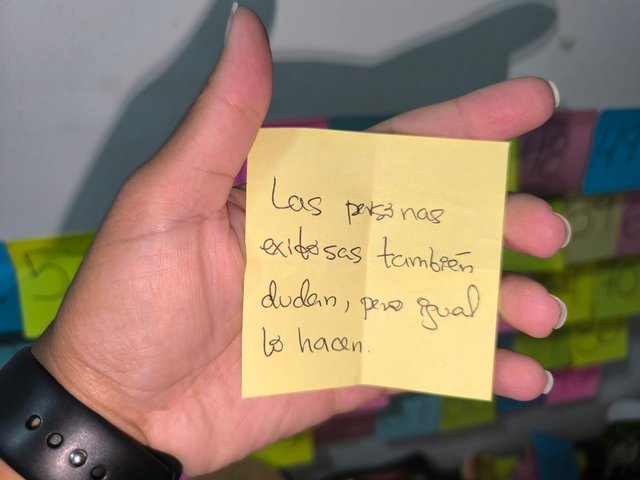 Las personas
exitosas también
dudan, pero igual
lo hacen.